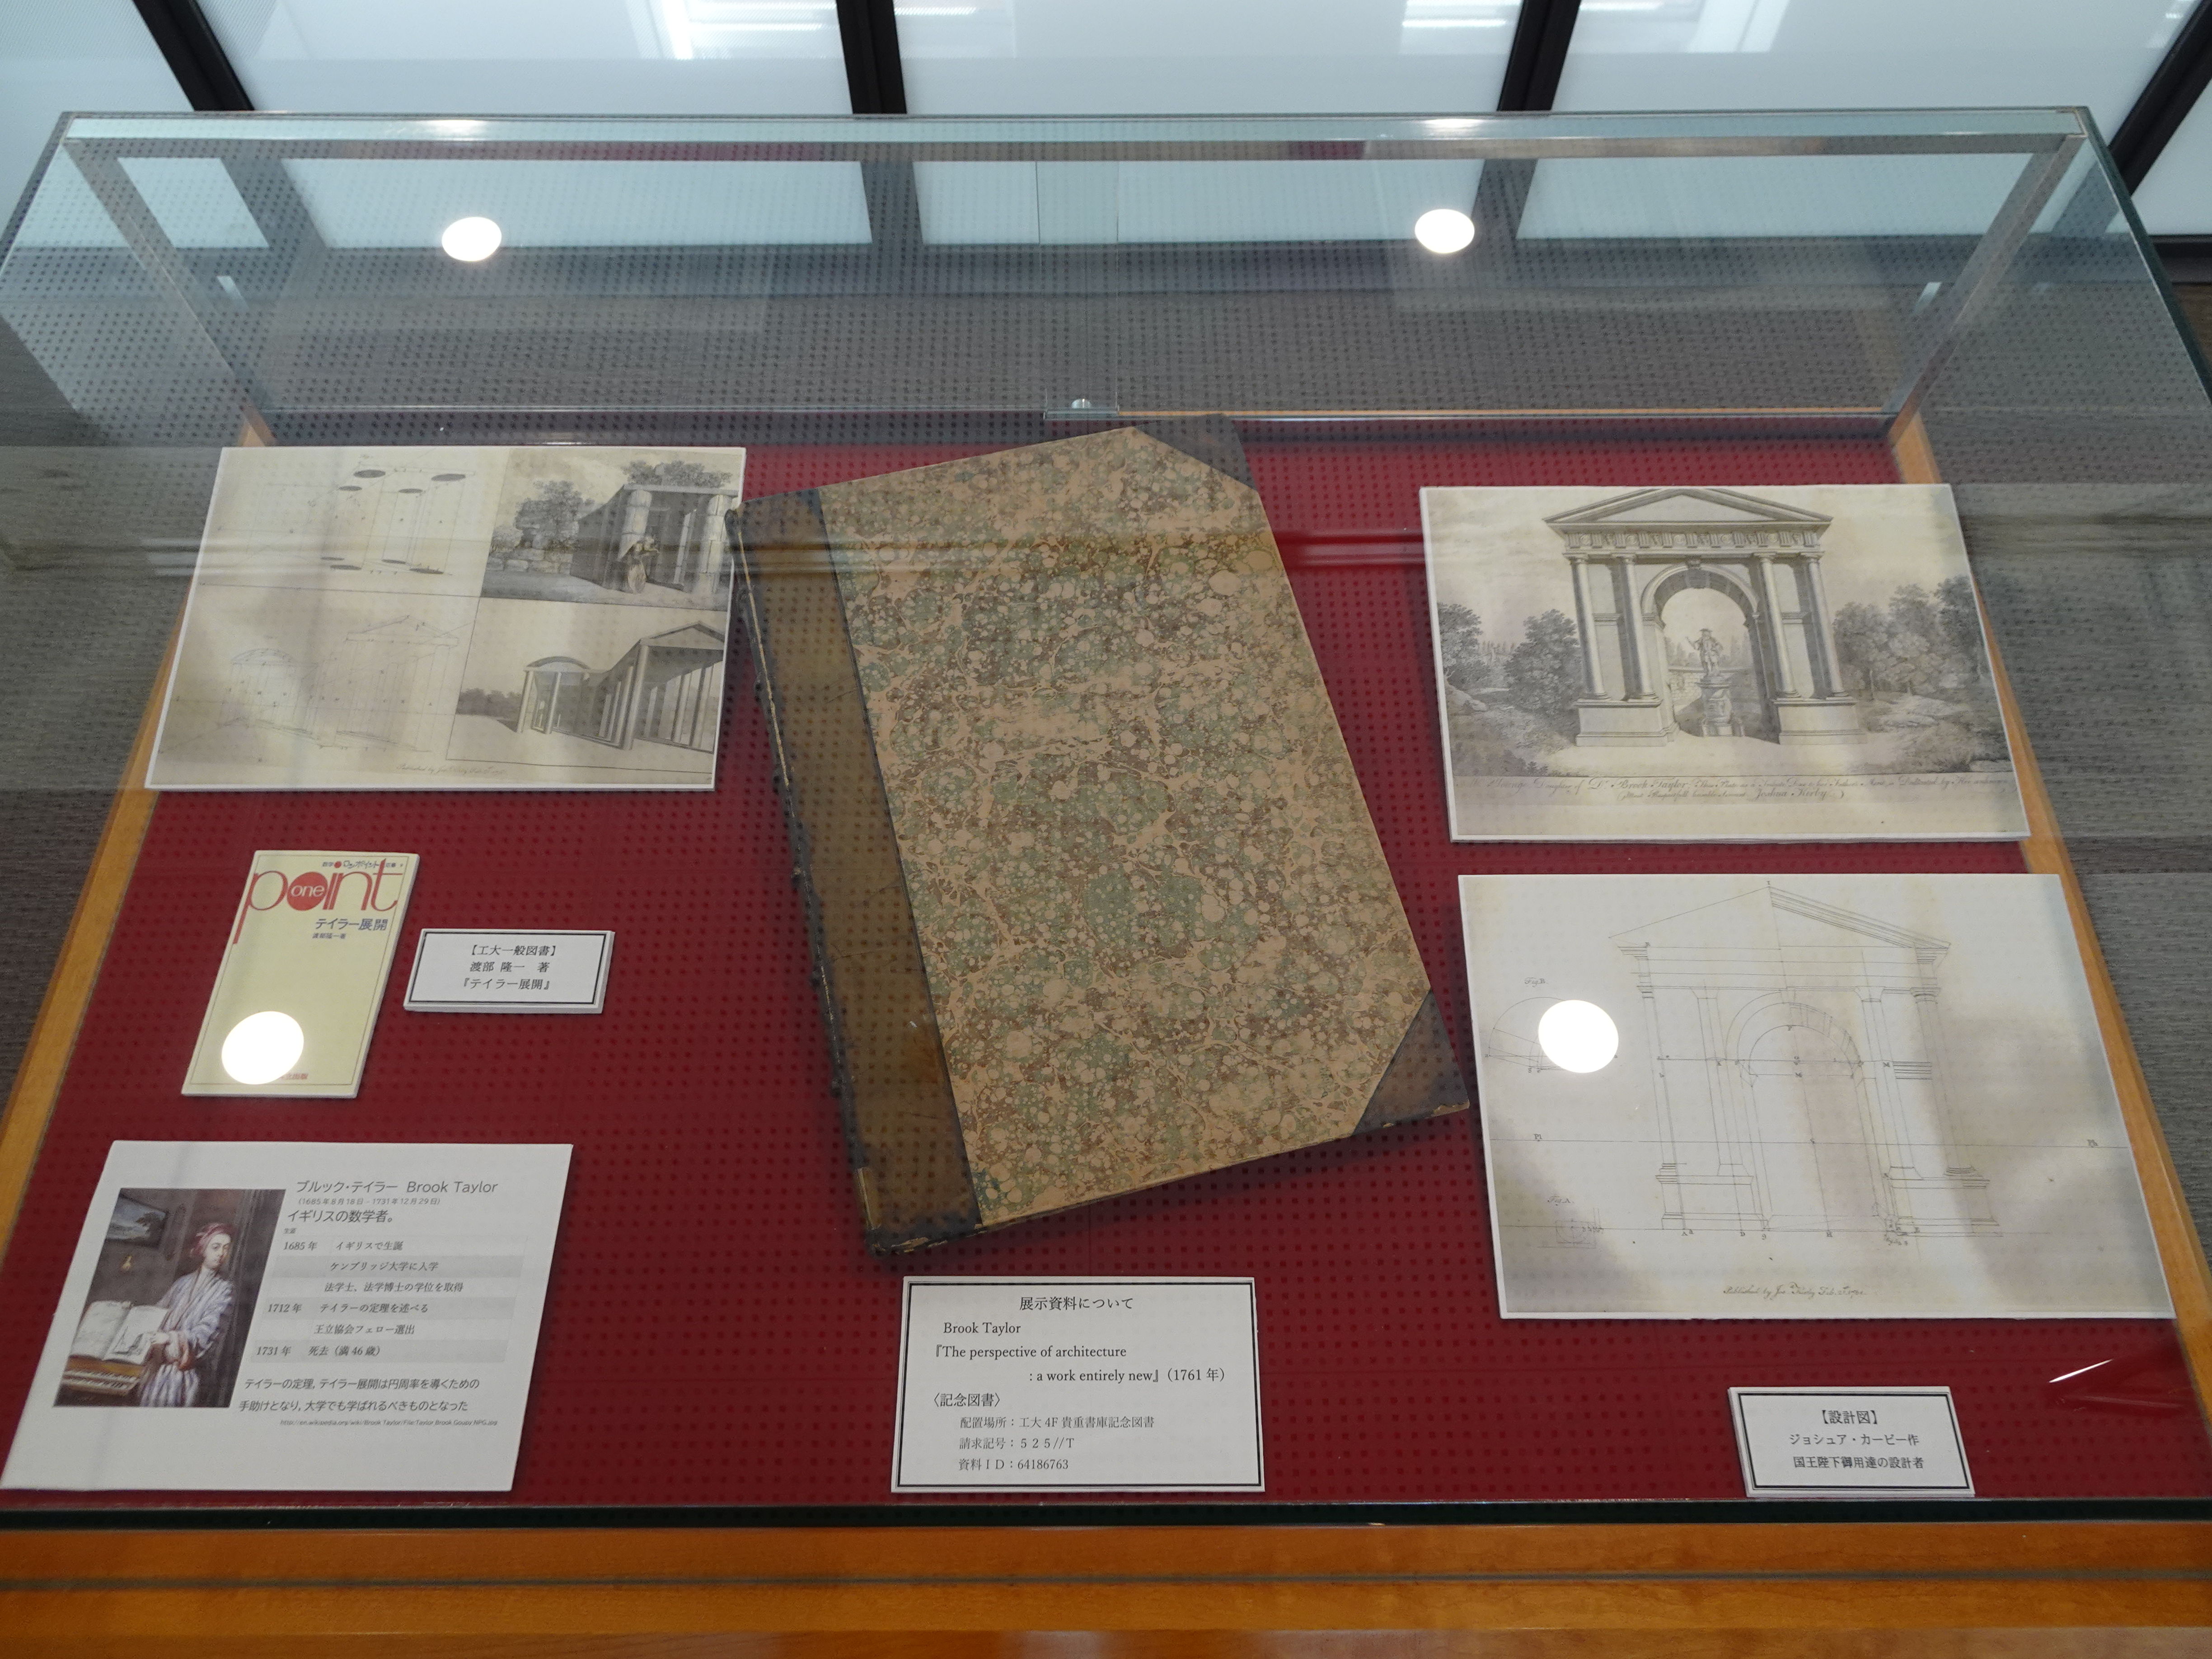 Published by
point
one
テイラー展開
【工大一般図書】
渡部 隆一　著
『テイラー展開』
ブルック・テイラー Brook Taylor
（1685年8月18日 - 1731年12月29日）
イギリスの数学者。
生涯
1685年　イギリスで生誕
ケンブリッジ大学に入学
法学士、法学博士の学位を取得
1712年　テイラーの定理を述べる
王立協会フェロー選出
1731年　死去（満46歳）
テイラーの定理, テイラー展開は円周率を導くための
手助けとなり, 大学でも学ばれるべきものとなった
展示資料について
Brook Taylor
『The perspective of architecture
: a work entirely new』（1761年）
〈記念図書〉
配置場所：工大4F 貴重書庫記念図書
請求記号：５２５//T
資料ＩＤ：64186763
Brook Taylor
Joshua Kirby
Published by Jos. Kirby Feb.
【設計図】
ジョシュア・カービー作
国王陛下御用達の設計者